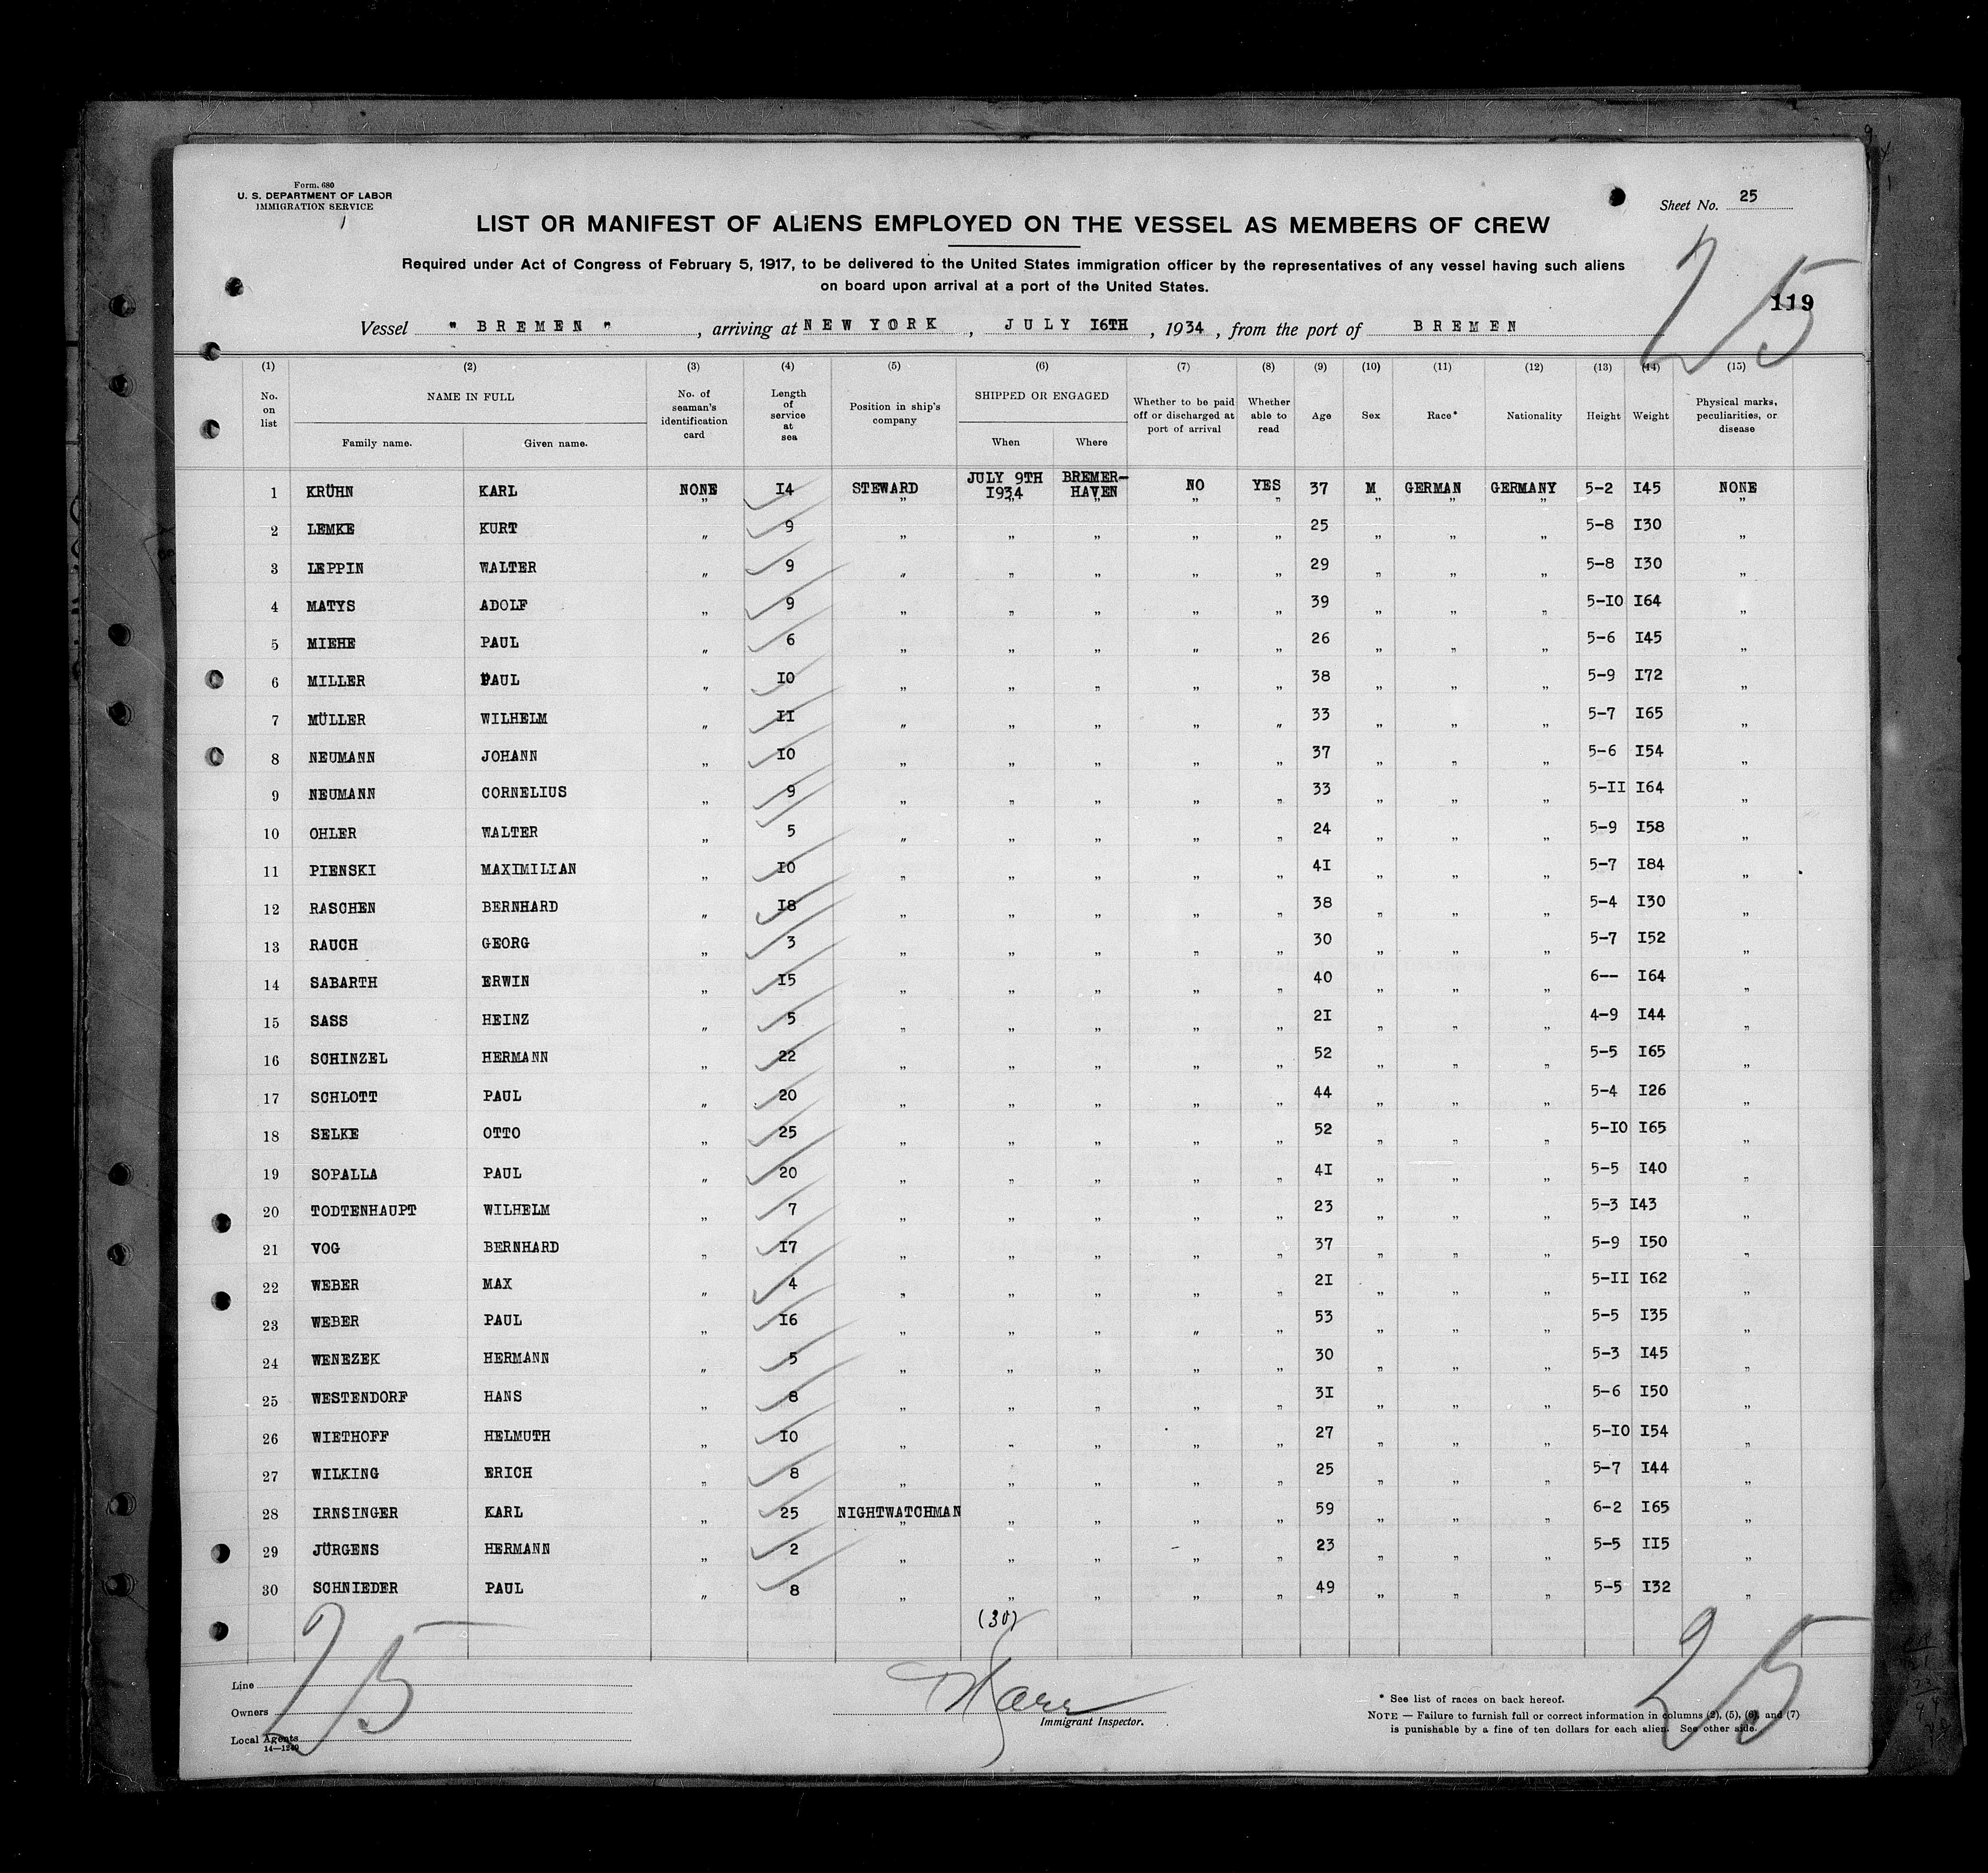 Form. 680
U. S. DEPARTMENT OF LABOR
IMMIGRATION SERVICE
Sheet No. 25
LIST OR MANIFEST OF ALIENS EMPLOYED ON THE VESSEL AS MEMBERS OF CREW
Required under Act of Congress of February 5, 1917, to be delivered to the United States immigration officer by the representatives of any vessel having such aliens
on board upon arrival at a port of the United States.
25
119
Vessel " BREMEN " , arriving at NEW YORK , JULY I6TH , 1934 , from the port of BREMEN
(1) (2) (3) (4) (5) (6) (7) (8) (9) (10) (11) (12) (13) (14) (15)
No. on list NAME IN FULL Family name. Given name. No. of seaman's identification card Length of service at sea Position in ship's company SHIPPED OR ENGAGED When Where Whether to be paid off or discharged at port of arrival Whether able to read Age Sex Race* Nationality Height Weight Physical marks, peculiarities, or disease
1 KRÜHN KARL NONE I4 STEWARD JULY 9TH I934 BREMER-HAVEN NO YES 37 M GERMAN GERMANY 5-2 I45 NONE
2 LEMKE KURT " 9 " " " " " 25 " " " 5-8 I30 "
3 LEPPIN WALTER " 9 " " " " " 29 " " " 5-8 I30 "
4 MATYS ADOLF " 9 " " " " " 39 " " " 5-IO I64 "
5 MIEHE PAUL " 6 " " " " " 26 " " " 5-6 I45 "
6 MILLER PAUL " IO " " " " " 38 " " " 5-9 I72 "
7 MÜLLER WILHELM " II " " " " " 33 " " " 5-7 I65 "
8 NEUMANN JOHANN " IO " " " " " 37 " " " 5-6 I54 "
9 NEUMANN CORNELIUS " 9 " " " " " 33 " " " 5-II I64 "
10 OHLER WALTER " 5 " " " " " 24 " " " 5-9 I58 "
11 PIENSKI MAXIMILIAN " IO " " " " " 4I " " " 5-7 I84 "
12 RASCHEN BERNHARD " I8 " " " " " 38 " " " 5-4 I30 "
13 RAUCH GEORG " 3 " " " " " 30 " " " 5-7 I52 "
14 SABARTH ERWIN " I5 " " " " " 40 " " " 6-- I64 "
15 SASS HEINZ " 5 " " " " " 2I " " " 4-9 I44 "
16 SCHINZEL HERMANN " 22 " " " " " 52 " " " 5-5 I65 "
17 SCHLOTT PAUL " 20 " " " " " 44 " " " 5-4 I26 "
18 SELKE OTTO " 25 " " " " " 52 " " " 5-IO I65 "
19 SOPALLA PAUL " 20 " " " " " 4I " " " 5-5 I40 "
20 TODTENHAUPT WILHELM " 7 " " " " " 23 " " " 5-3 I43 "
21 VOG BERNHARD " I7 " " " " " 37 " " " 5-9 I50 "
22 WEBER MAX " 4 " " " " " 2I " " " 5-II I62 "
23 WEBER PAUL " I6 " " " " " 53 " " " 5-5 I35 "
24 WENEZEK HERMANN " 5 " " " " " 30 " " " 5-3 I45 "
25 WESTENDORF HANS " 8 " " " " " 3I " " " 5-6 I50 "
26 WIETHOFF HELMUTH " IO " " " " " 27 " " " 5-IO I54 "
27 WILKING ERICH " 8 " " " " " 25 " " " 5-7 I44 "
28 IRNSINGER KARL " 25 NIGHTWATCHMAN " " " " 59 " " " 6-2 I65 "
29 JÜRGENS HERMANN " 2 " " " " " 23 " " " 5-5 II5 "
30 SCHNIEDER PAUL " 8 " " " " " 49 " " " 5-5 I32 "
(30)
25
25
Line
Owners
Local Agents
14—1240
Immigrant Inspector.
* See list of races on back hereof.
NOTE — Failure to furnish full or correct information in columns (2), (5), (6), and (7)
is punishable by a fine of ten dollars for each alien. See other side.